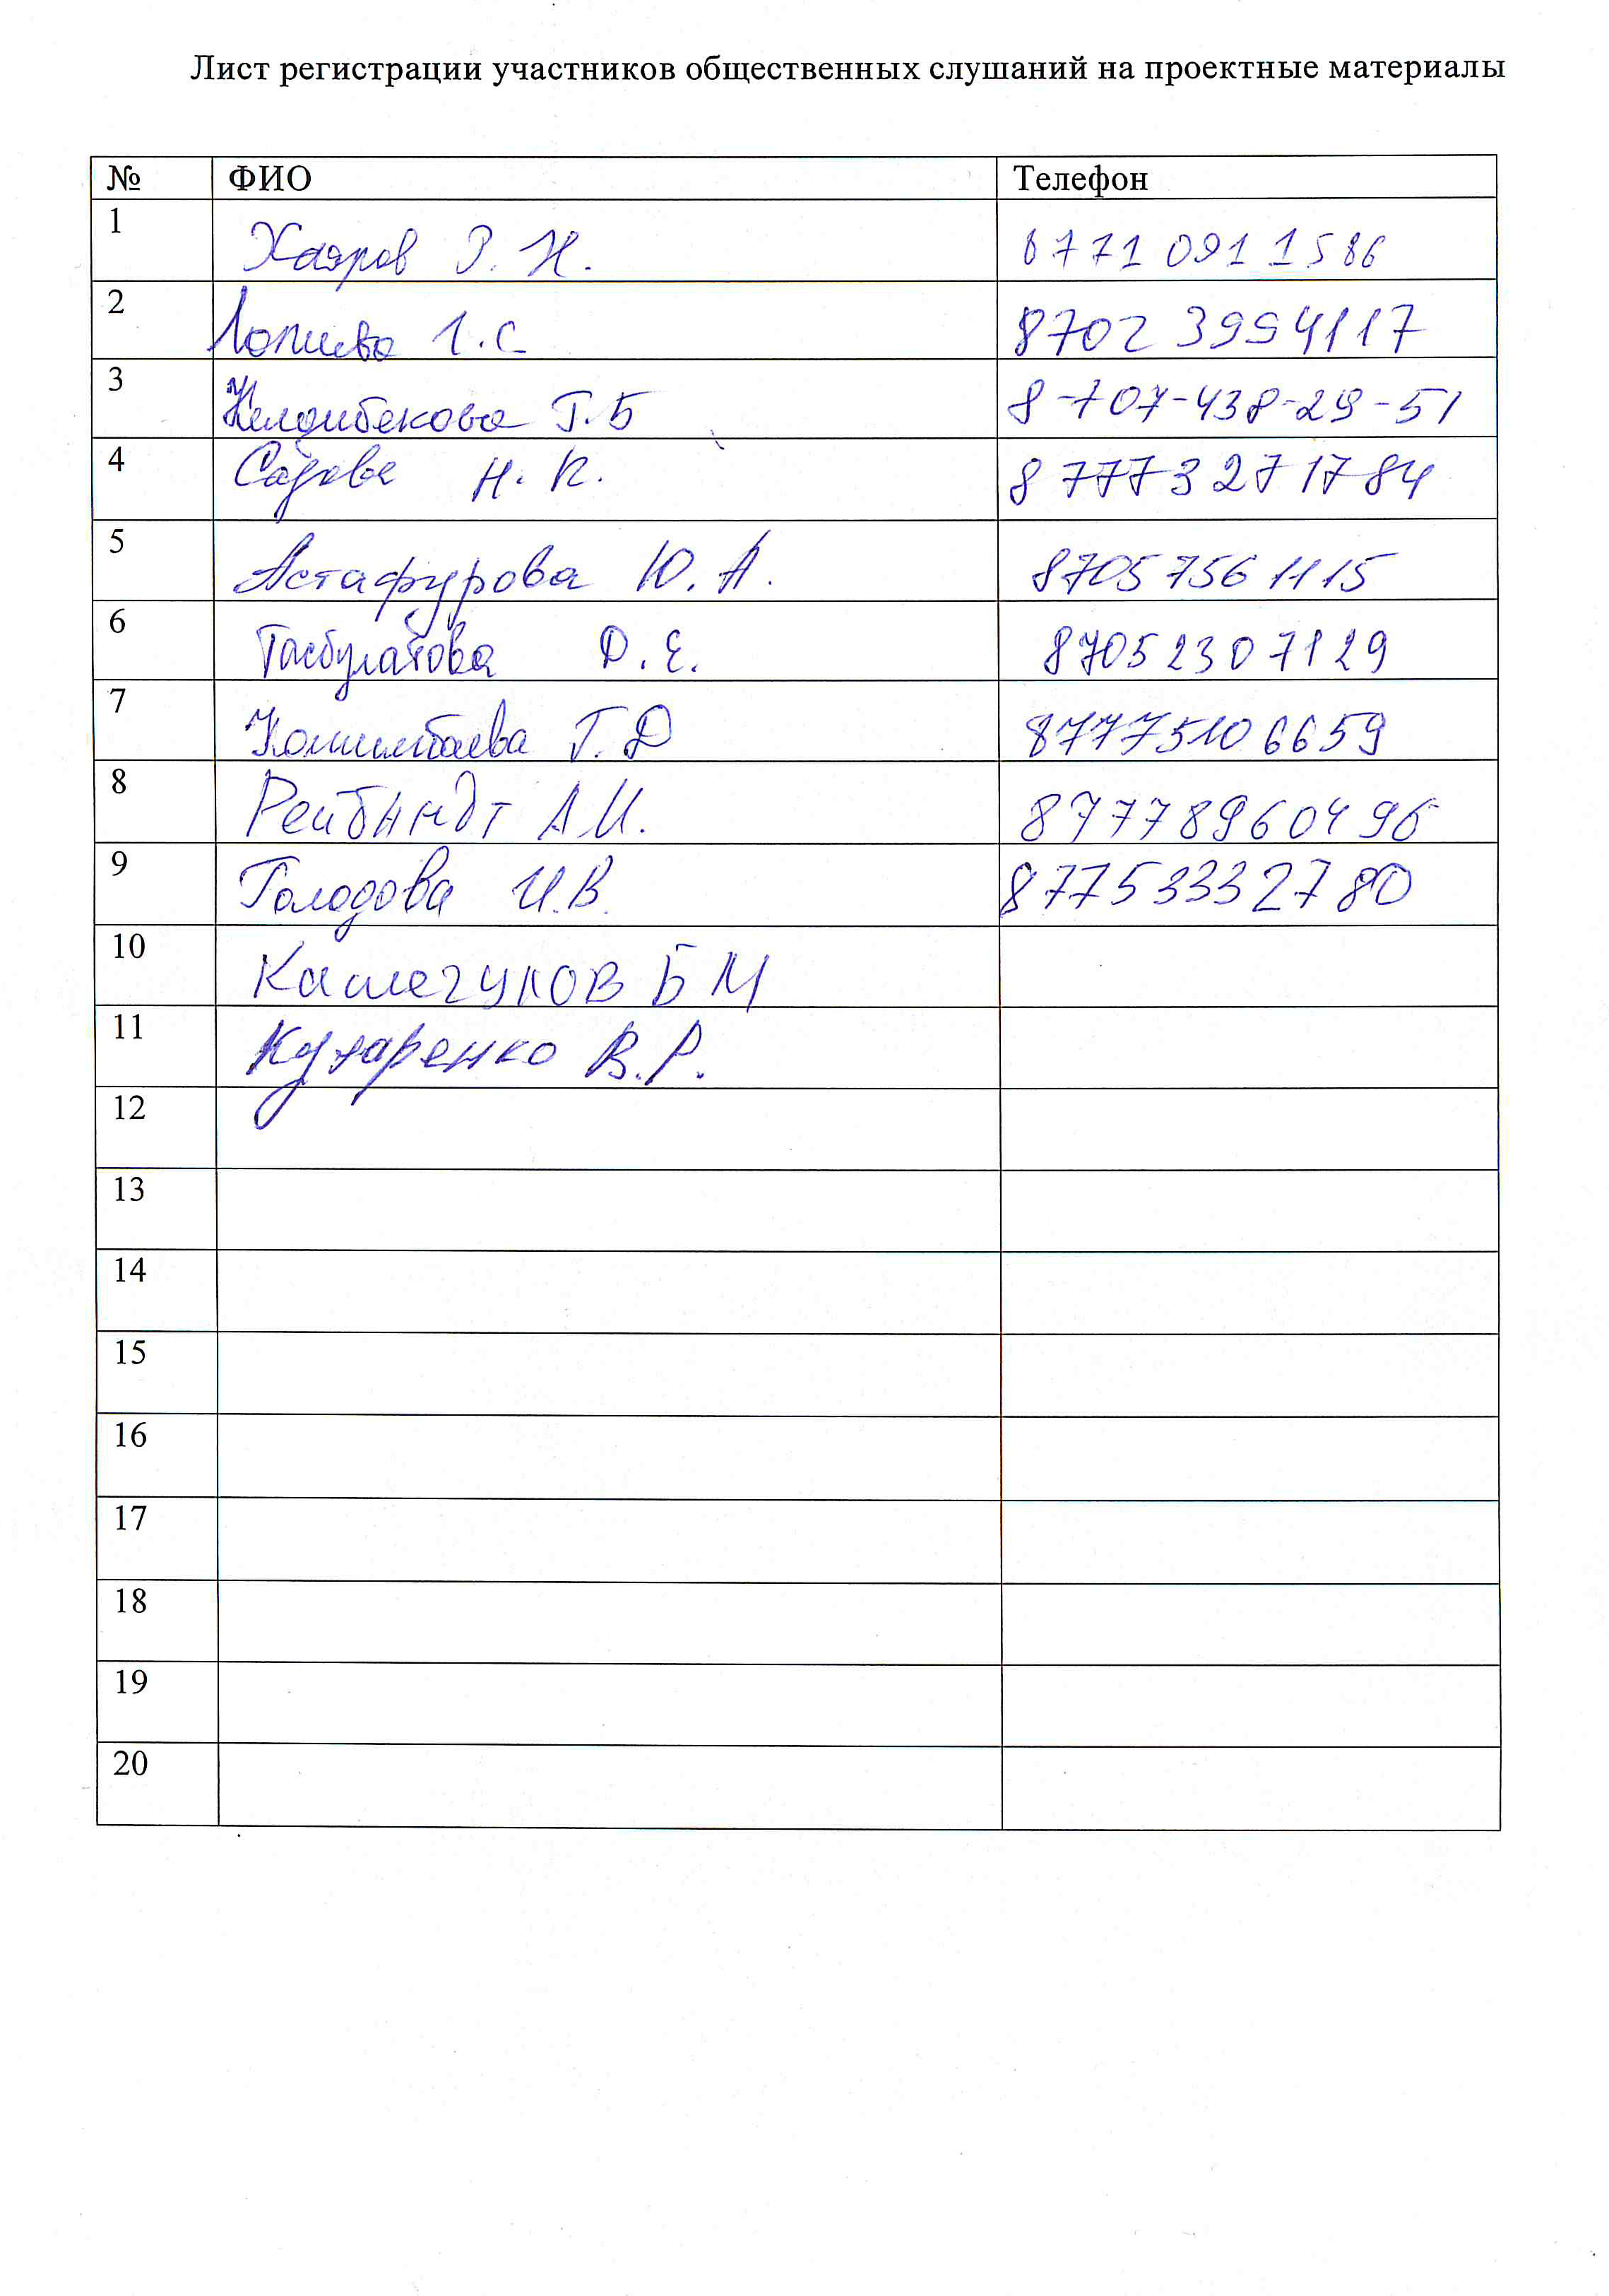 Лист регистрации участников общественных слушаний на проектные материалы
№ ФИО Телефон
1 Хаяров Р. Н. 8771 091 1586
2 Г.С 8702 3994117
3 Келдибекова Г.Б 8-707-438-29-51
4 Садова Н. К. 8 777 3 27 17 84
5 Астафурова Ю. А. 8705 756 1115
6 Тасбулатова Д. Е. 8705 230 7129
7 Кошимбаева Г.Д 8777510 6659
8 А И. 87778960496
9 Голодова И.В. 87753332780
10 Кашегулов Б М
11 Кухаренко В.Р.
12
13
14
15
16
17
18
19
20